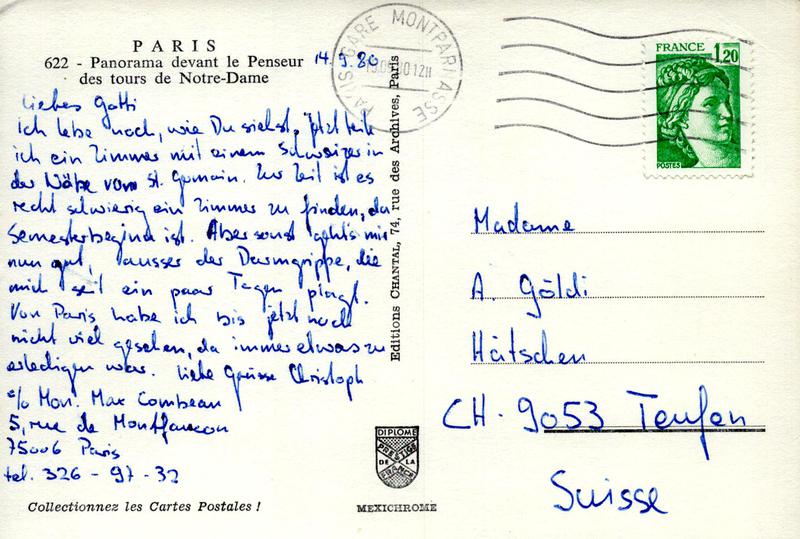 PARIS
622 - Panorama devant le Penseur
des tours de Notre-Dame
14.9.80
Liebes Gotti
Ich lebe noch, wie Du siehst. Jetzt teile
ich ein Zimmer mit einem Schweizer in
der Nähe von St. Germain. Zur Zeit ist es
recht schwierig ein Zimmer zu finden, da
Semesterbeginn ist. Aber sonst geht's mir
nun gut, ausser der Darmgrippe, die
mich seit ein paar Tagen plagt.
Von Paris habe ich bis jetzt noch
nicht viel gesehen, da immer etwas zu
erledigen war. Liebe Grüsse Christoph
c/o Mon. Max Combeau
5, rue de Montfaucon
75006 Paris
tel. 326-97-32
Collectionnez les Cartes Postales !
Editions CHANTAL, 74, rue des Archives, Paris
DIPLOME
PRESTIGE
DE LA
FRANCE
MEXICHROME
PARIS GARE MONTPARNASSE
12H
FRANCE
1,20
POSTES
Madame
A. Göldi
Hätschen
CH-9053 Teufen
Suisse